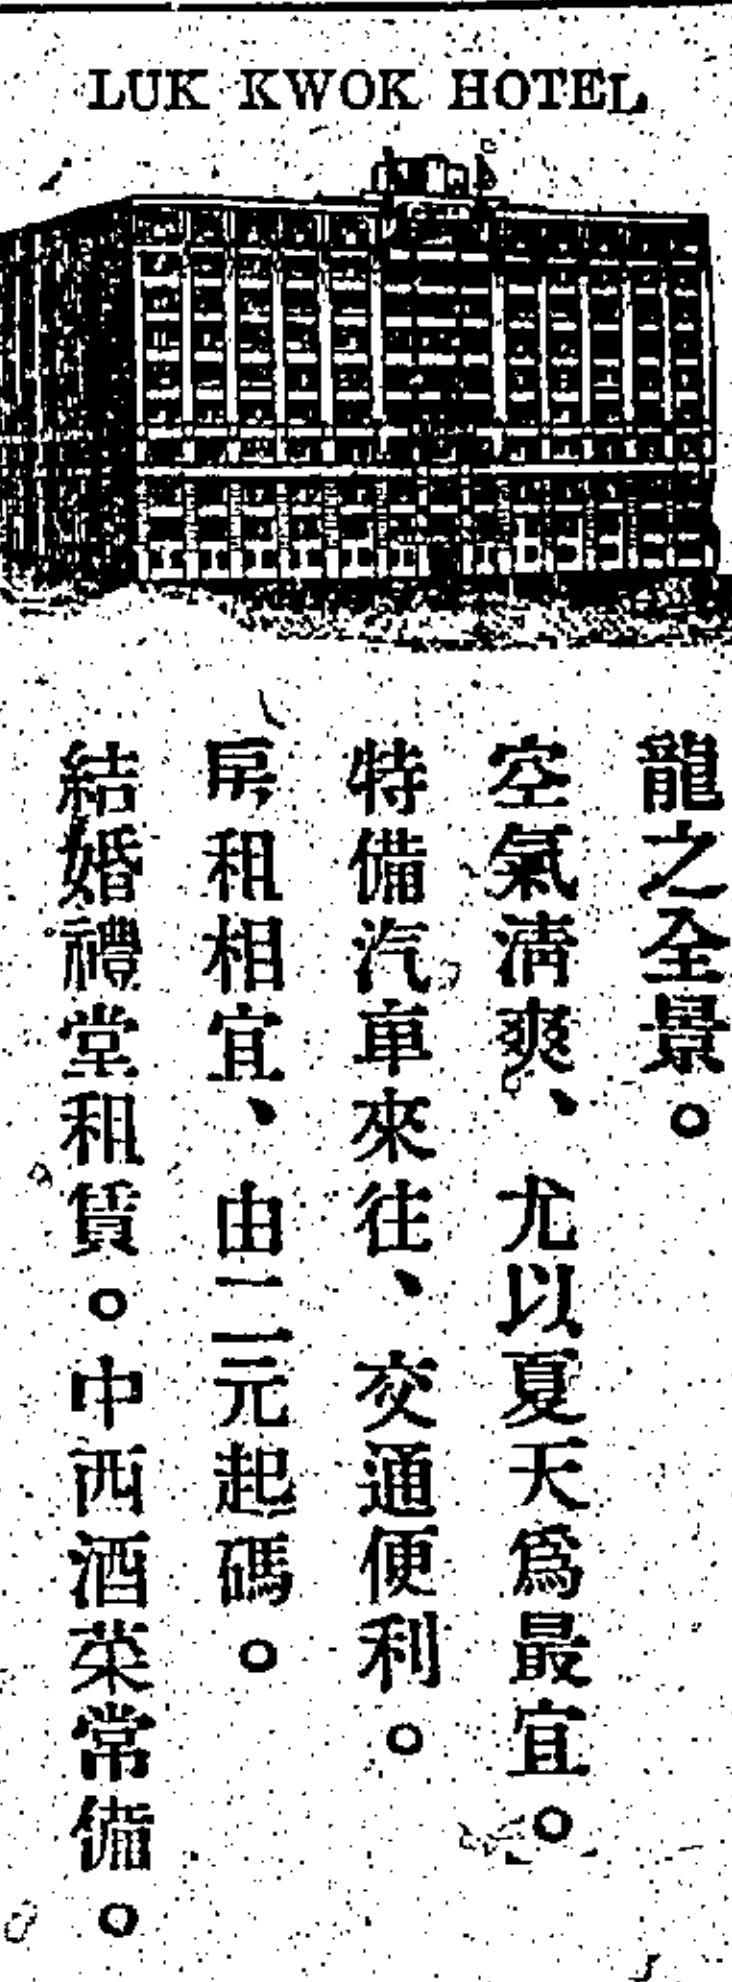 LUK KWOK HOTEL
龍之全景。
空氣清爽、尤以夏天為最宜。
特備汽車來往、交通便利。
房租相宜、由二元起碼。
結婚禮堂租賃。中西酒菜常備。